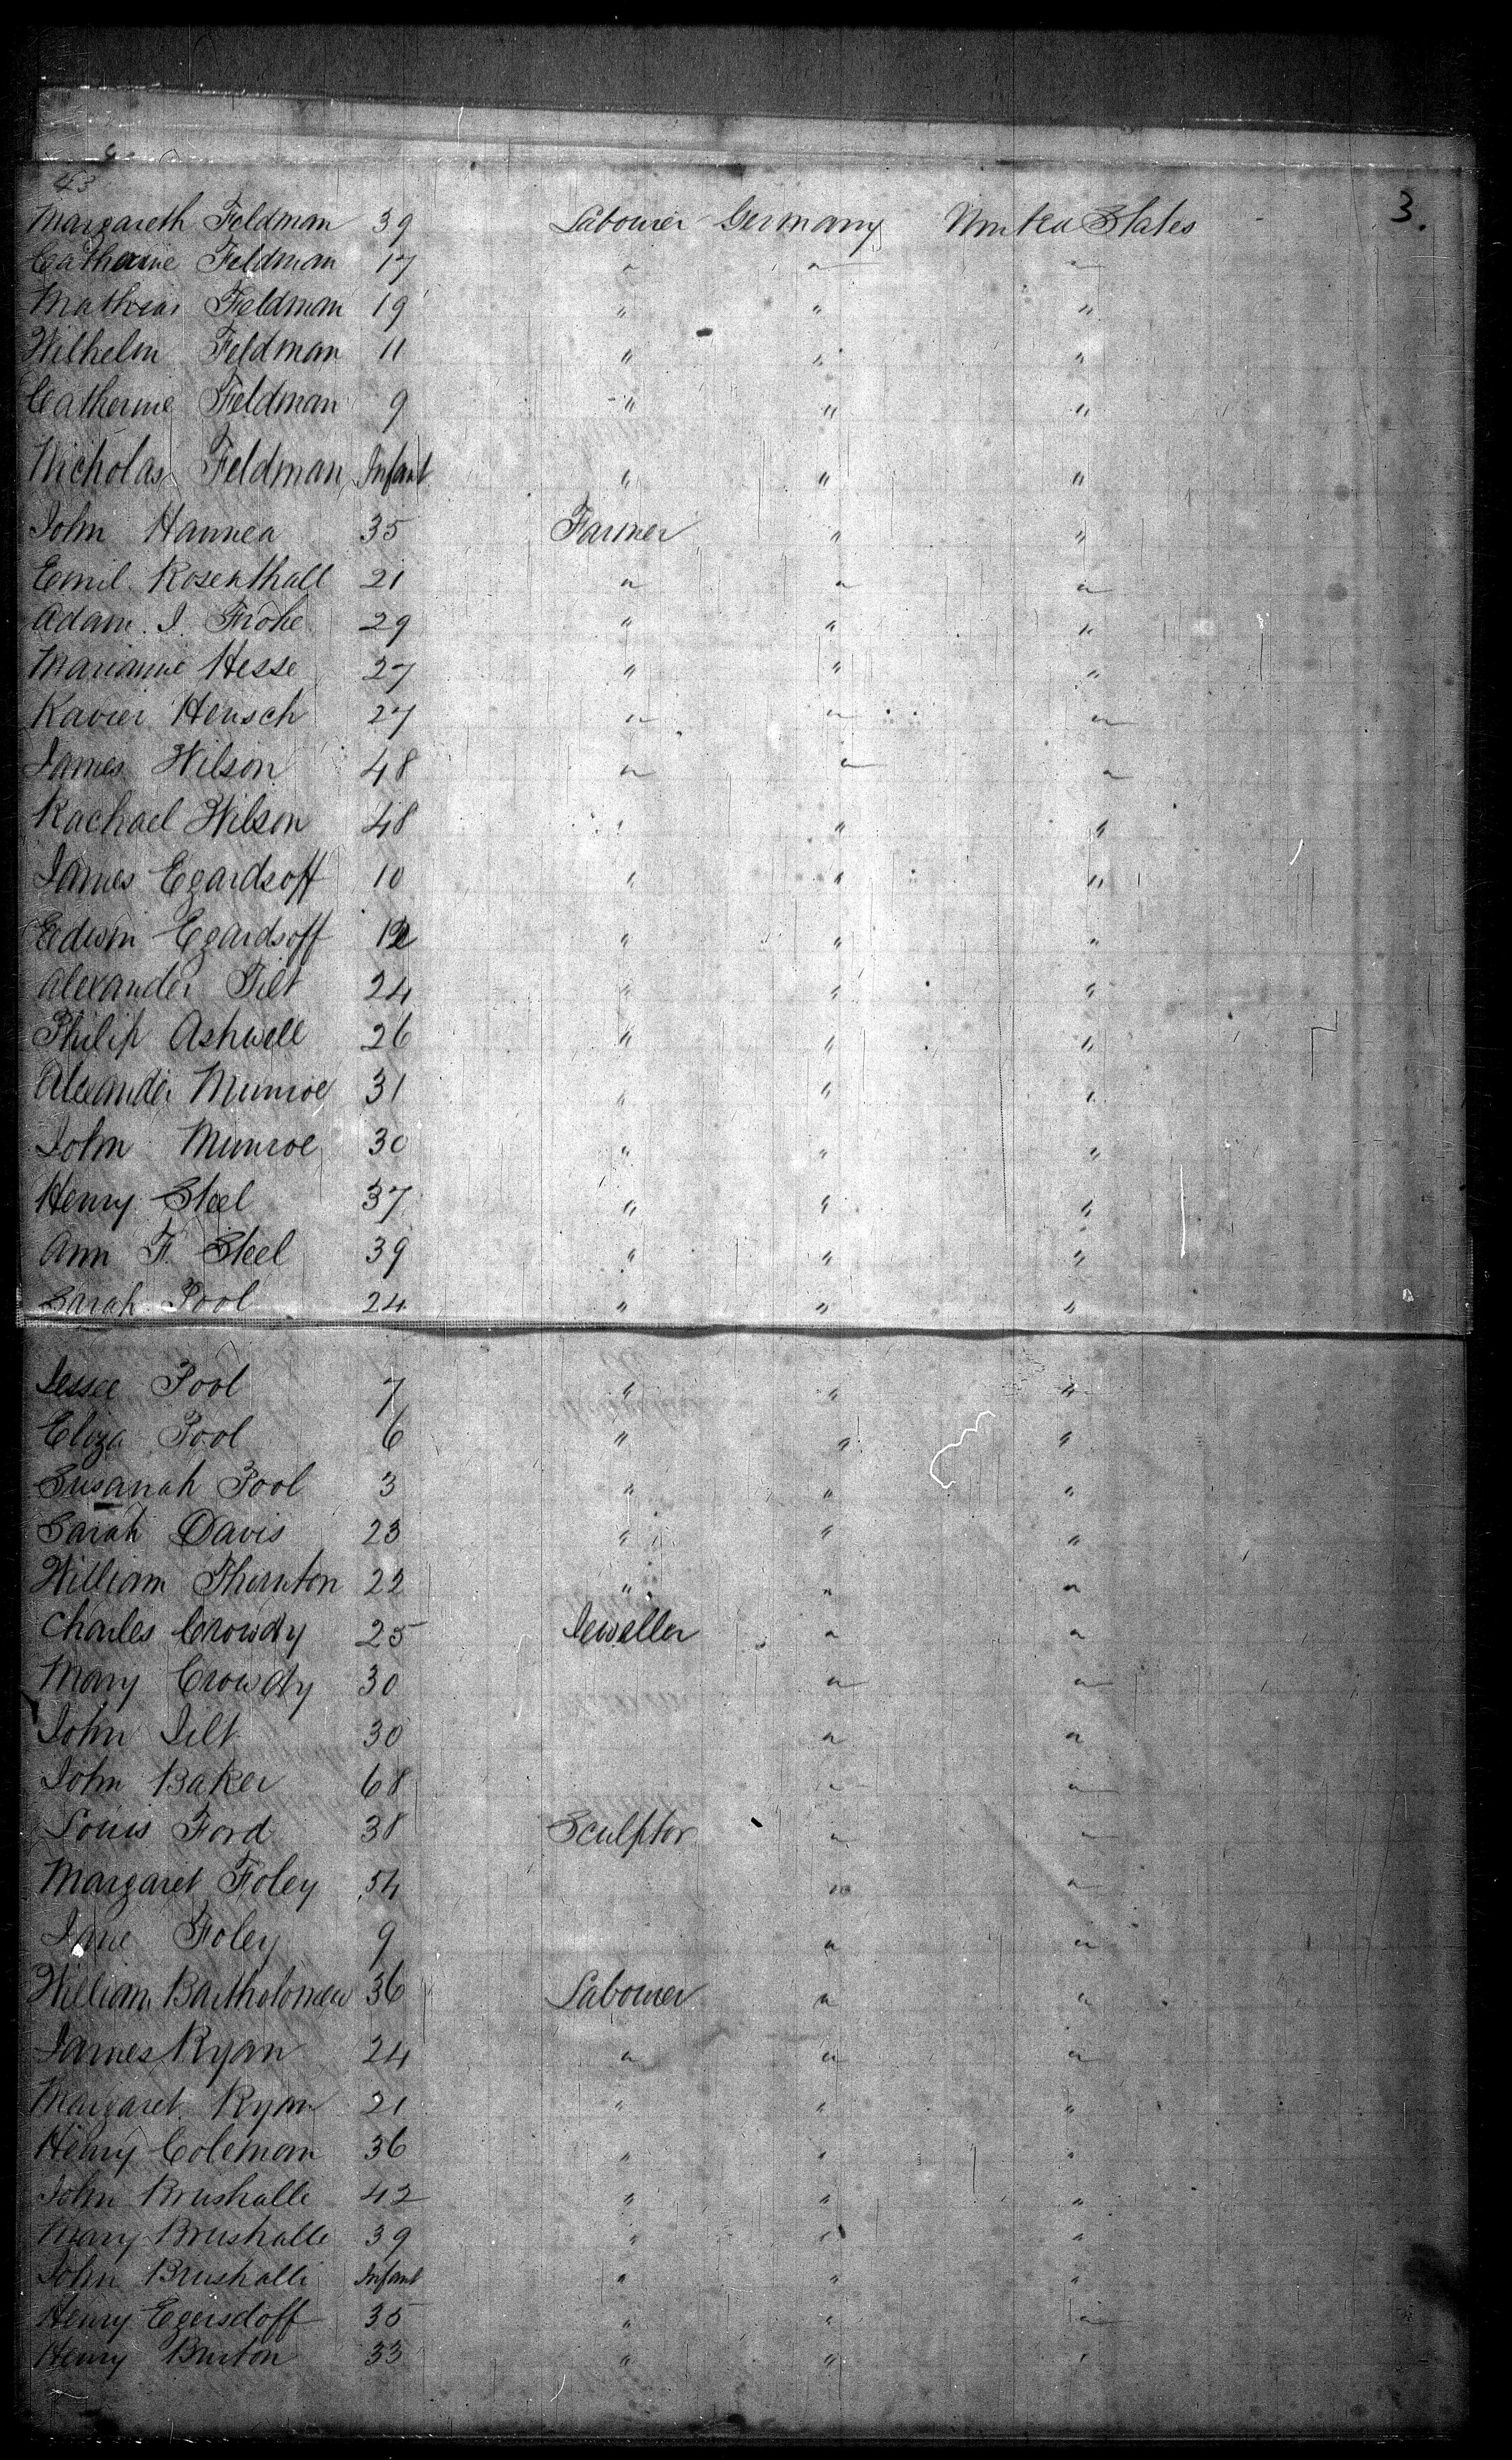 43
3.
Margareth Feldman 39 Labourer Germany United States
Catharine Feldman 17 " " "
Mathias Feldman 19 " " "
Wilhelm Feldman 11 " " "
Catherine Feldman 9 " " "
Nicholas Feldman Infant " " "
John Hannea 35 Farmer " "
Emil Rosenthall 21 " " "
Adam J. Frohe 29 " " "
Marianne Hesse 27 " " "
Xavier Hensch 27 " " "
James Wilson 48 " " "
Rachael Wilson 48 " " "
James Egardsoff 10 " " "
Edwin Egardsoff 12 " " "
Alexander Tilt 24 " " "
Philip Ashwell 26 " " "
Alexander Munroe 31 " " "
John Munroe 30 " " "
Henry Steel 37 " " "
Ann F. Steel 39 " " "
Sarah Pool 24 " " "
Jessee Pool 7 " " "
Eliza Pool 6 " " "
Susanah Pool 3 " " "
Sarah Davis 23 " " "
William Thornton 22 " " "
Charles Crowdy 25 Jeweller " "
Mary Crowdy 30 " "
John Jilt 30 " "
John Baker 68 " "
Louis Ford 38 Sculptor " "
Margaret Foley 54 " "
Jane Foley 9 " "
William Bartholomew 36 Labourer " "
James Ryan 24 " " "
Margaret Ryan 21 " " "
Henry Coleman 36 " " "
John Brushalle 42 " " "
Mary Brushalle 39 " " "
John Brushalle Infant " " "
Henry Egersdoff 35 " " "
Henry Burton 33 " " "